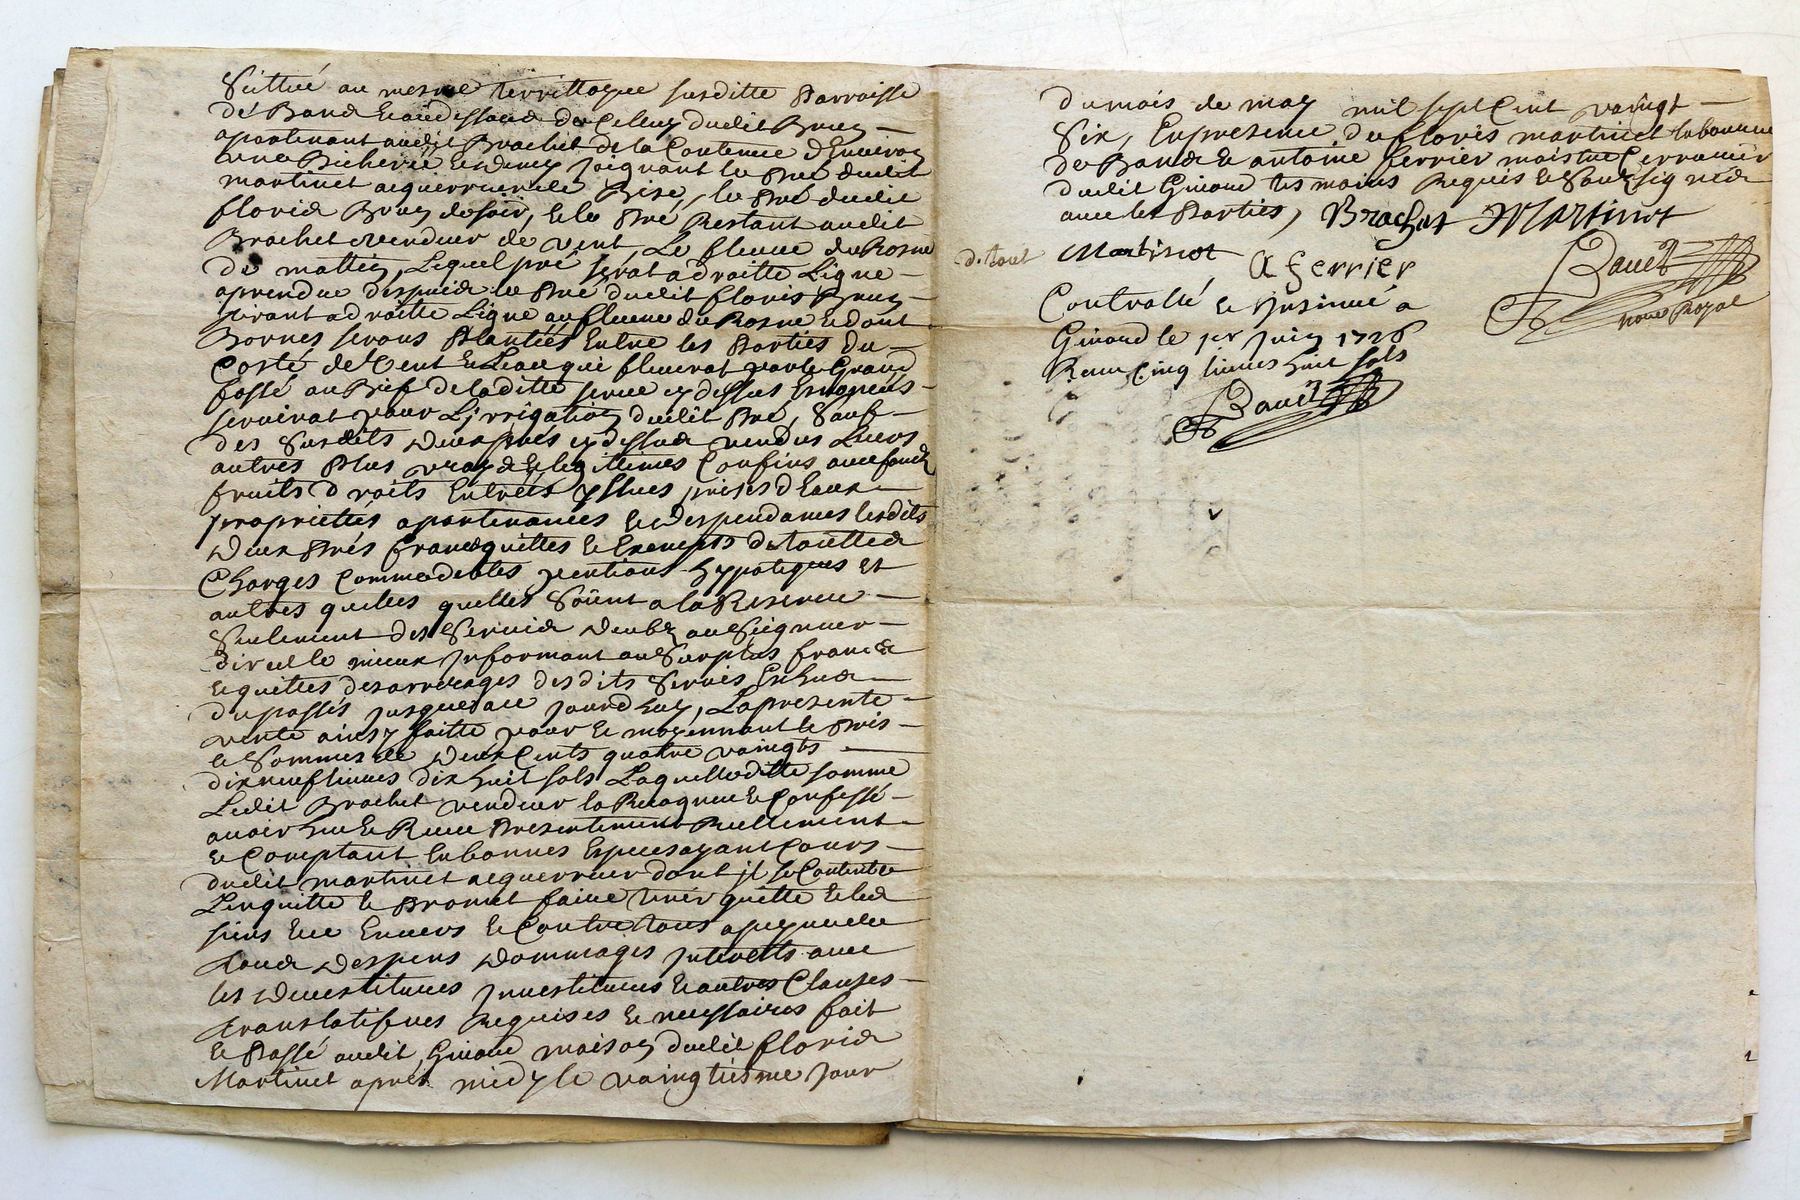 Scittué au mesme territtoyre susditte Parroisse
de Band Eaudessous de Celluy dudit Bruy
apartenant audit Brachet de la Contenue d'Environ
une Bicherée Edemy joignant le Pré dudit
martinet acquerreur de Bise, le Pré dudit
floris Bruy de soir, & le Pré Restant audit
Brachet vendeur de vent, Le fleuve du Rosne
de mattin, Lequel pré serat a droitte Ligne
aprendre despuis le Pré dudit floris Bruy
tirant a droitte Ligne au fleuve du Rosne & dont
Bornes serons Plantées Entre les Parties du
Costé de Vent & Leau qui fluerat par le Grand
fossé au Bief de laditte serve cy dessus
servirat pour L'irrigation dudit Pré, Sauf
des Susdits deux prés cy dessus vendus Leurs
autres Plus vrays & legittimes Confins avec fonds
fruits droits Entrées yssues prises d'Eaux
proprietés apartenances & despendances lesdits
deux Prés francs quittes & Exempts de touttes
Charges Commodables pentions hypoteques et
autres quelles quelles Soïent a la Reserve
Seulement des Servis deubz au Seigneur
direct le mieux jnformant au Surplus francs
& quittes desarrerages desdits Servis Escheus
du passés jusques a ce jourdhuy, La presente
vente ainsy faitte pour & moyennant le Pris
& Somme de deux Cents quatre vaingts
dix neuf livres dix huit sols Laquelleditte somme
Ledit Brachet vendeur la Recogneu & Confessé
avoir heu & Receu Presentement Reellement
& Comptant En bonnes Especes ayant Cours
dudit martinet acquerreur dont jl se Contente
L'enquitte & Promet faire tenir quitte & les
siens Envers & Contre tous a peyne de
tous despens dommages jnteretts avec
les devestitures jnvestitures & autres Clauses
translatifves Requises & necessaires fait
& Passé audit Giroud maison dudit floris
Martinet aprés midy le vaingtiesme jour
du mois de may mil sept Cent vaingt
Six, En presence de floris martinet laboureur
de Bande & antoine ferrier maistre serrurier
dudit Giroud tesmoins Requis & Soussignés
avec les Parties, Brachet Martinet
d. tout Martinet A ferrier
Controllé & Insinué a
Giroud le 1er juin 1726
Receu Cinq livres huit sols
Royal